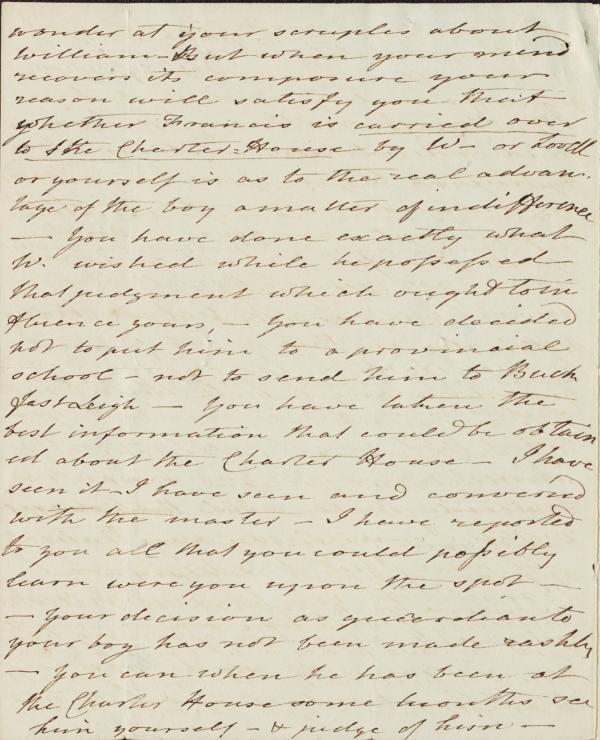 wonder at your scruples about
William – But when your mind
recovers its composure your
reason will satisfy you that
whether Francis is carried over
to the Charter=House by W– or Lovell
or yourself is as to the real advan.
tage of the boy a matter of indifference
– You have done exactly what
W. wished while he possessed
that judgment which ought to in
fluence yours, – You have decided
not to put him to a provincial
school – not to send him to Buck
fastLeigh – You have taken the
best information that could be obtain
ed about the Charter House – I have
seen it – I have seen and conversed
with the master – I have reported
to you all that you could possibly
learn were you upon the spot –
– your decision as guardian to
your boy has not been made rashly
– you can when he has been at
the Charter House some months see
him yourself – & judge of him –